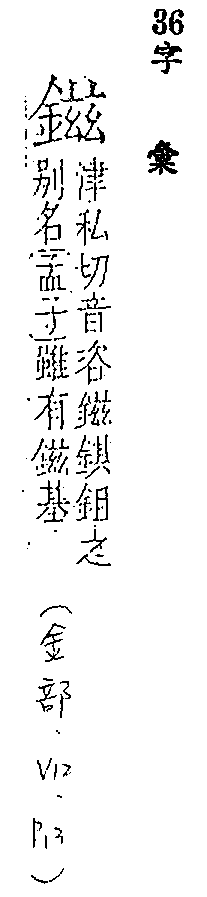 36字彙
鎡
津私切音咨鎡錤鉏之
别名孟子雖有鎡基
(金部.V12.P13)